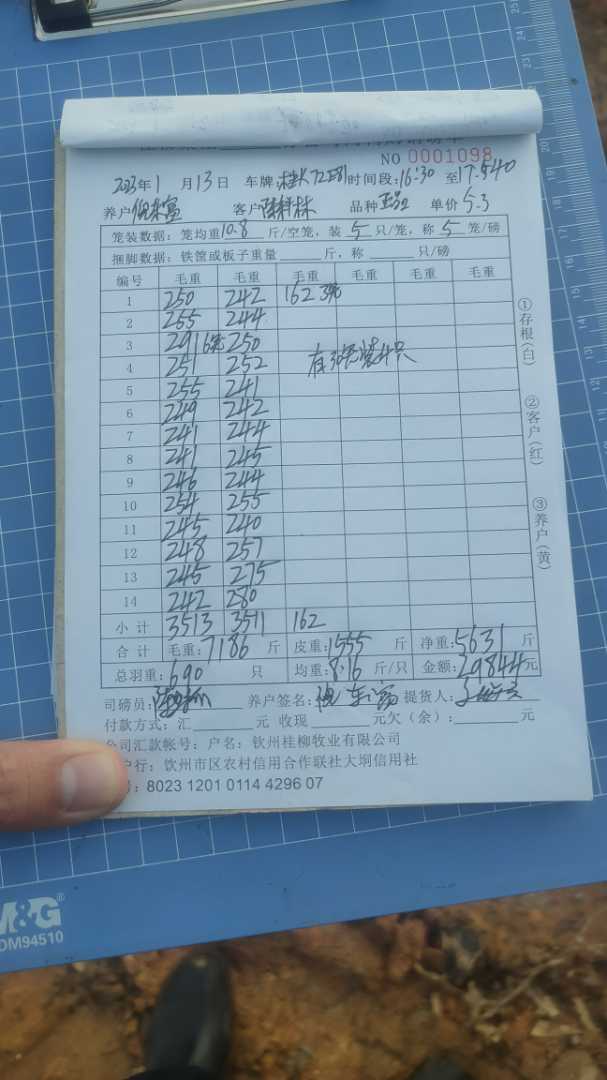 NO 0001098
2023年1月13日 车牌: 时间段:16:30 至17:540
养户 客户 品种 单价5.3
笼装数据: 笼均重10.8斤/空笼, 装5只/笼, 称5笼/磅
捆脚数据: 铁筐或板子重量 斤, 称 只/磅
编号 毛重 毛重 毛重 毛重 毛重 毛重
1 250 242 162 3笼
2 255 244
3 291 6笼 250
4 251 252 有30笼装4只
5 255 241
6 249 242
7 241 244
8 241 245
9 246 244
10 254 255
11 245 240
12 248 257
13 245 275
14 242 280
小计 3513 3511 162
合计 毛重:7186斤 皮重:1555斤 净重:5631斤
总羽重:690只 均重:8.16斤/只 金额:29844元
司磅员: 养户签名: 提货人:
付款方式: 汇 元 收现 元欠(余): 元
公司汇款帐号: 户名: 钦州桂柳牧业有限公司
户行: 钦州市区农村信用合作联社大垌信用社
号: 8023 1201 0114 4296 07
①存根(白)
②客户(红)
③养户(黄)
M&G
DM94510